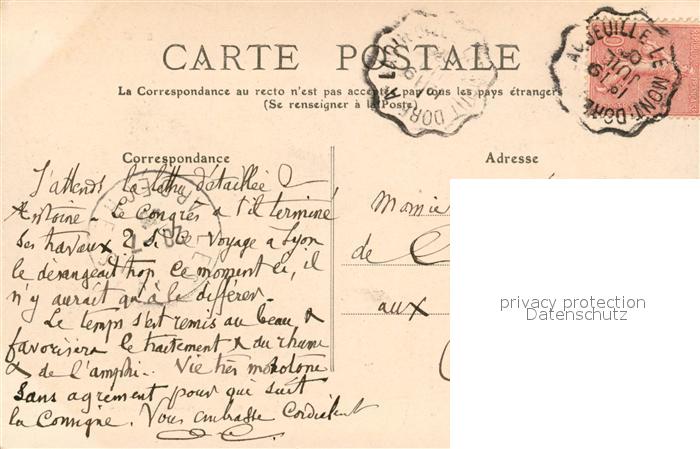 CARTE POSTALE
La Correspondance au recto n'est pas acceptée par tous les pays étrangers
(Se renseigner à la Poste)
LAQUEUILLE LE MONT-DORE
LAQUEUILLE LE MONT-DORE
Correspondance
J'attends la lettre détaillée
Antoine - Le Congrès a t'il terminé
ses travaux ? Si ce voyage à Lyon
le dérangeait trop ce moment ci, il
n'y aurait qu'à le différer -
Le temps s'est remis au beau &
favorisera le traitement & du rhume
& de l'amphi.. Vie très monotone
sans agrément pour qui suit
la Consigne. Vous embrasse Cordialent
Adresse
de
aux
privacy protection
Datenschutz